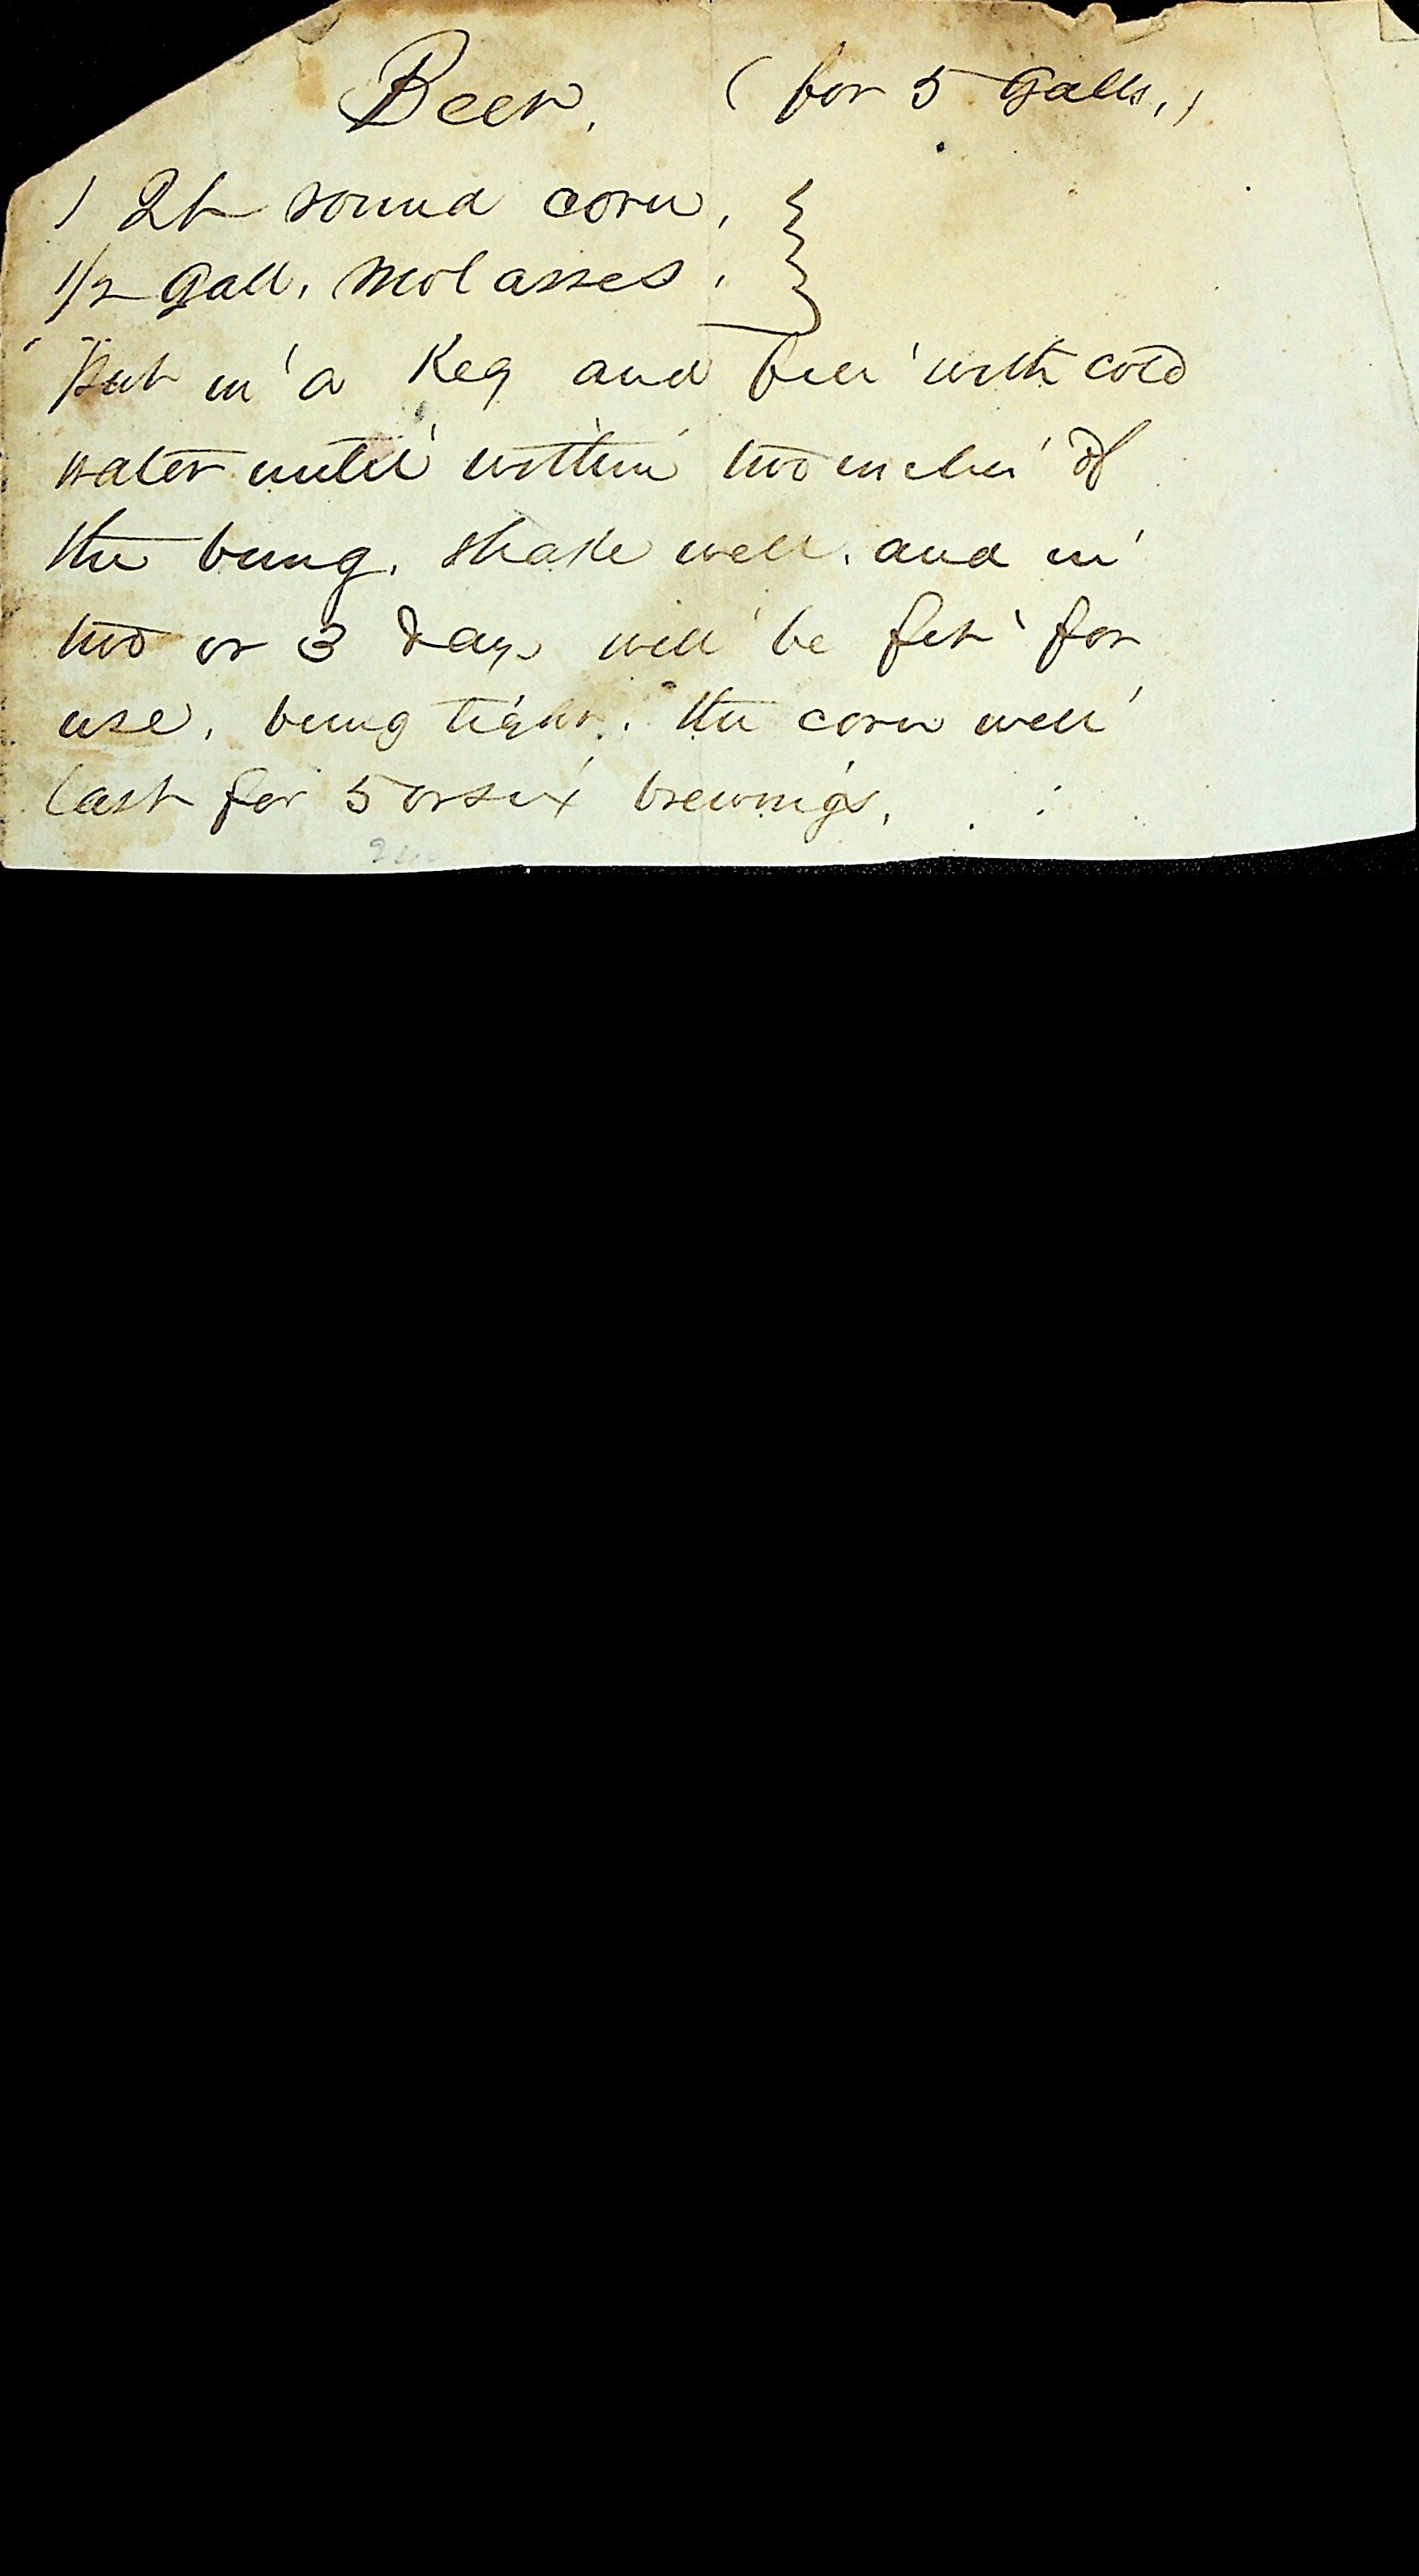 Beer. (for 5 Galls.)
1 Qt sound corn.
1/2 Gall. Molasses.
Put in a Keg and fill with cold
water until within two inches of
the bung. shake well. and in
two or 3 days will be fit for
use. bung tight. the corn will
last for 5 or six brewings.